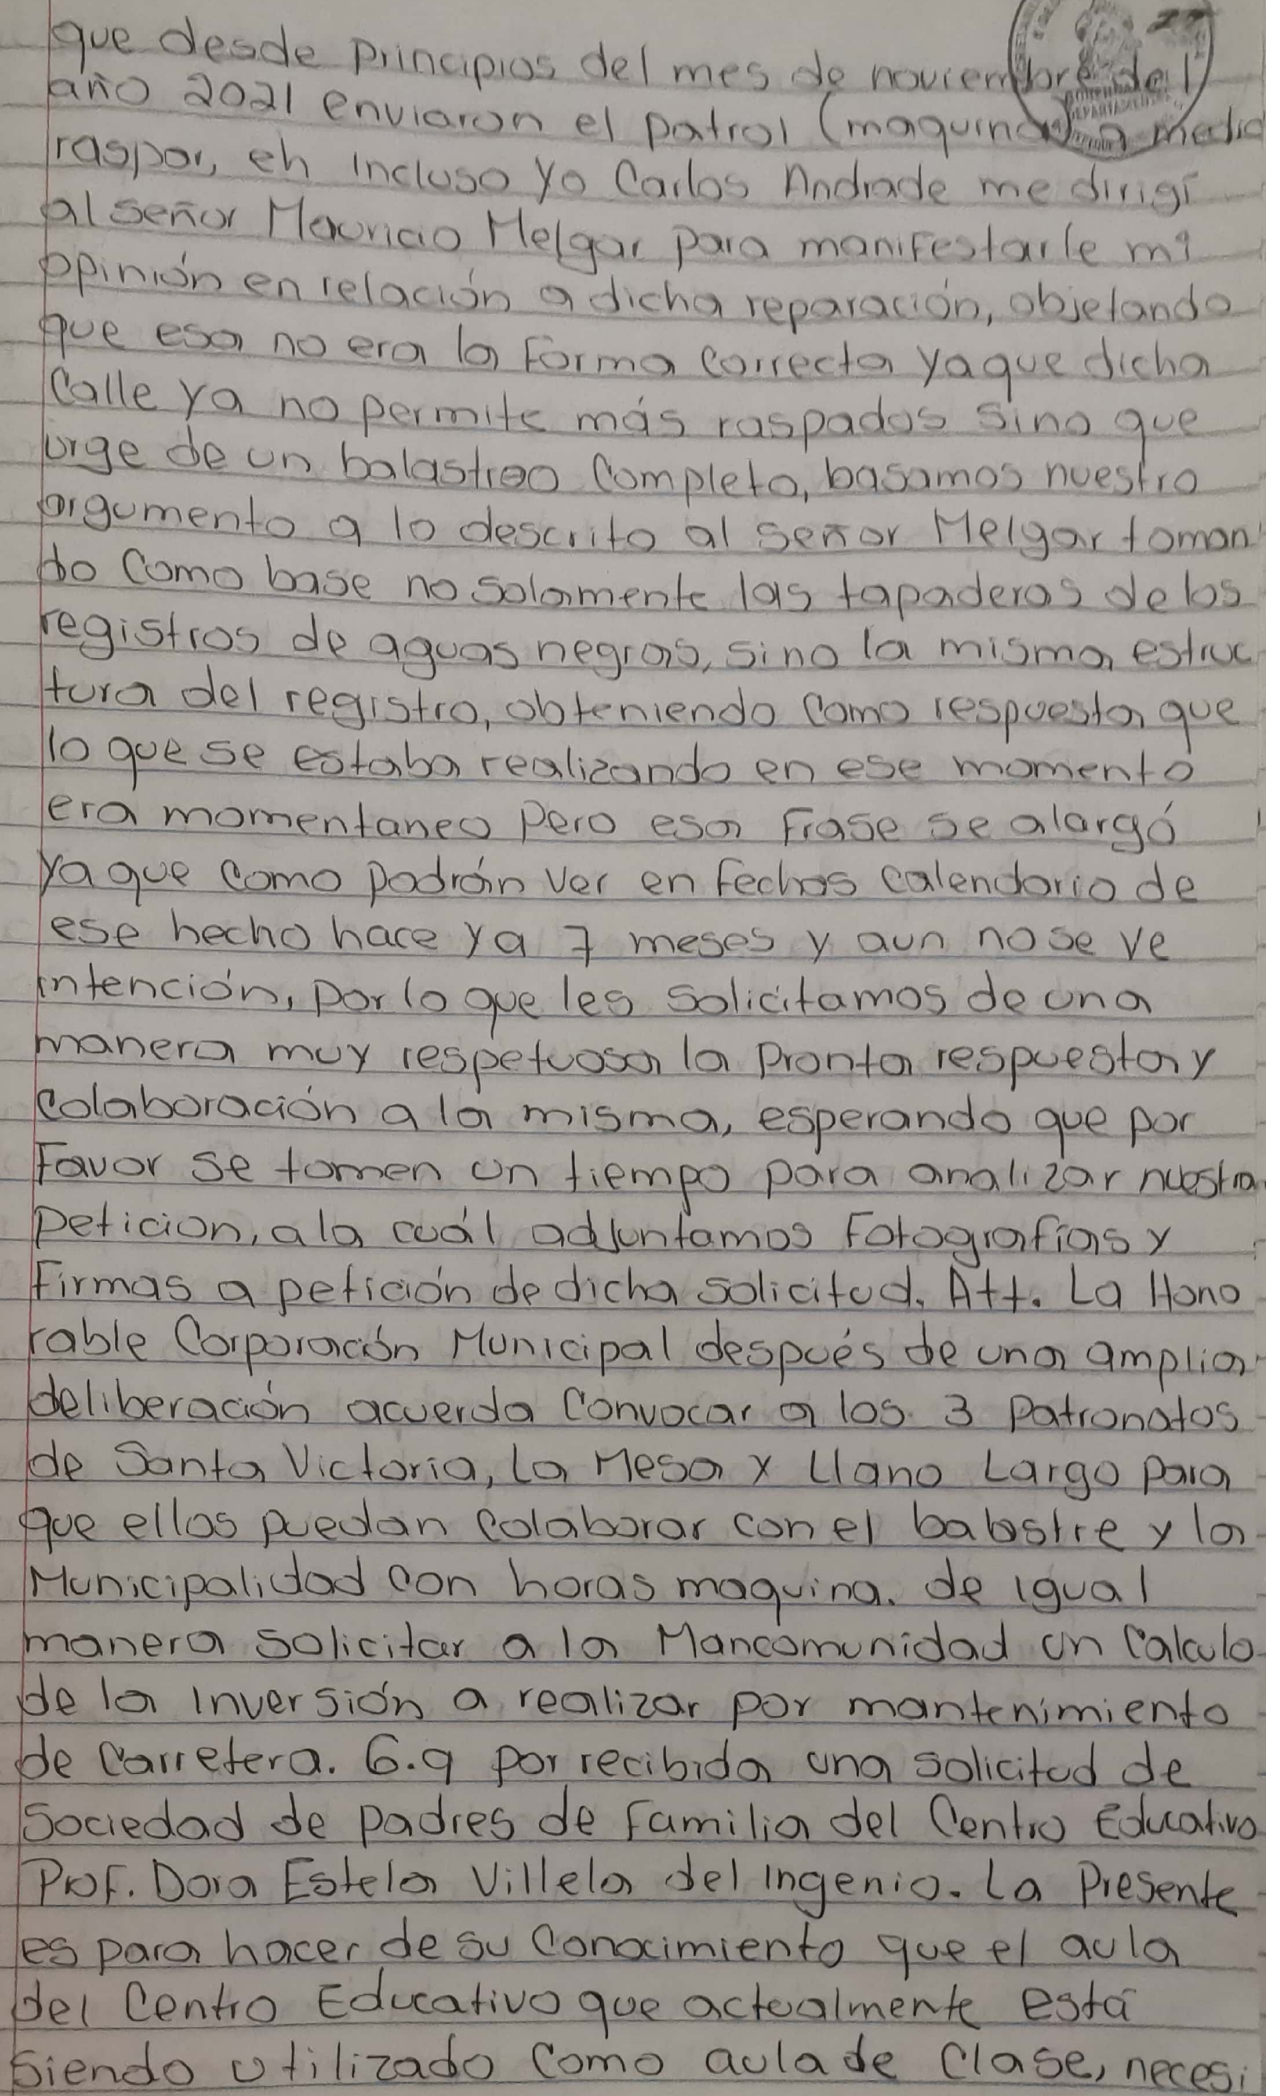 27
que desde principios del mes de noviembre del
año 2021 enviaron el patrol (maquina) a medio
raspar, eh incluso yo Carlos Andrade me dirigí
al señor Mauricio Melgar para manifestarle mi
opinión en relación a dicha reparación, objetando
que esa no era la forma correcta ya que dicha
Calle ya no permite más raspados sino que
urge de un balastreo Completo, basamos nuestro
argumento a lo descrito al señor Melgar toman
do Como base no solamente las tapaderas de los
registros de aguas negras, sino la misma estruc
tura del registro, obteniendo Como respuesta que
lo que se estaba realizando en ese momento
era momentaneo pero esa frase se alargó
ya que como podrán ver en fechas calendario de
ese hecho hace ya 7 meses y aun no se ve
intención, por lo que les solicitamos de una
manera muy respetuosa la pronta respuesta y
Colaboración a la misma, esperando que por
favor se tomen un tiempo para analizar nuestra
peticion, a la cuál adjuntamos Fotografías y
firmas a petición de dicha solicitud. Att. La Hono
rable Corporación Municipal después de una amplia
deliberación acuerda Convocar a los 3 Patronatos
de Santa Victoria, La Mesa y Llano Largo para
que ellos puedan Colaborar con el balastre y la
Municipalidad con horas maquina. de igual
manera solicitar a la Mancomunidad un Calculo
de la inversión a realizar por mantenimiento
de Carretera. 6.9 por recibida una solicitud de
Sociedad de padres de familia del Centro Educativo
Prof. Dora Estela Villela del Ingenio. La Presente
es para hacer de su Conocimiento que el aula
del Centro Educativo que actualmente está
siendo utilizado Como aula de Clase, necesi